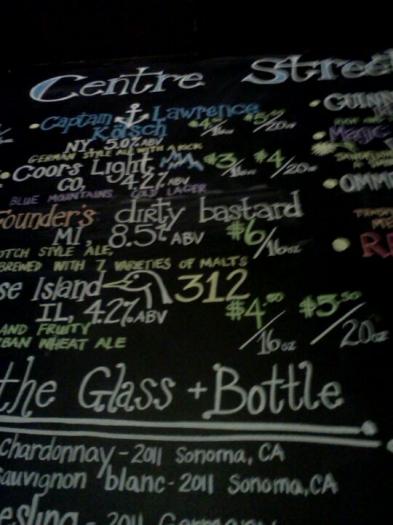 Centre Stree
Captain Lawrence
Kolsch
NY 5.0% ABV
GERMAN STYLE ALE WITH A KICK
GUINN
MAGIC
Coors Light $3/16oz $4/20oz
CO, 4.2% ABV
BLUE MOUNTAINS, COLD LAGER
OMME
Founder's dirty bastard
MI, 8.5% ABV $6/16oz
OTCH STYLE ALE,
BREWED WITH 7 VARIETIES OF MALTS
se Island 312
IL, 4.2% ABV $4.50/16oz $5.50/20oz
AND FRUITY
BAN WHEAT ALE
the Glass + Bottle
Chardonnay - 2011 Sonoma, CA
auvignon blanc - 2011 Sonoma, CA
esling - 2011 Germany